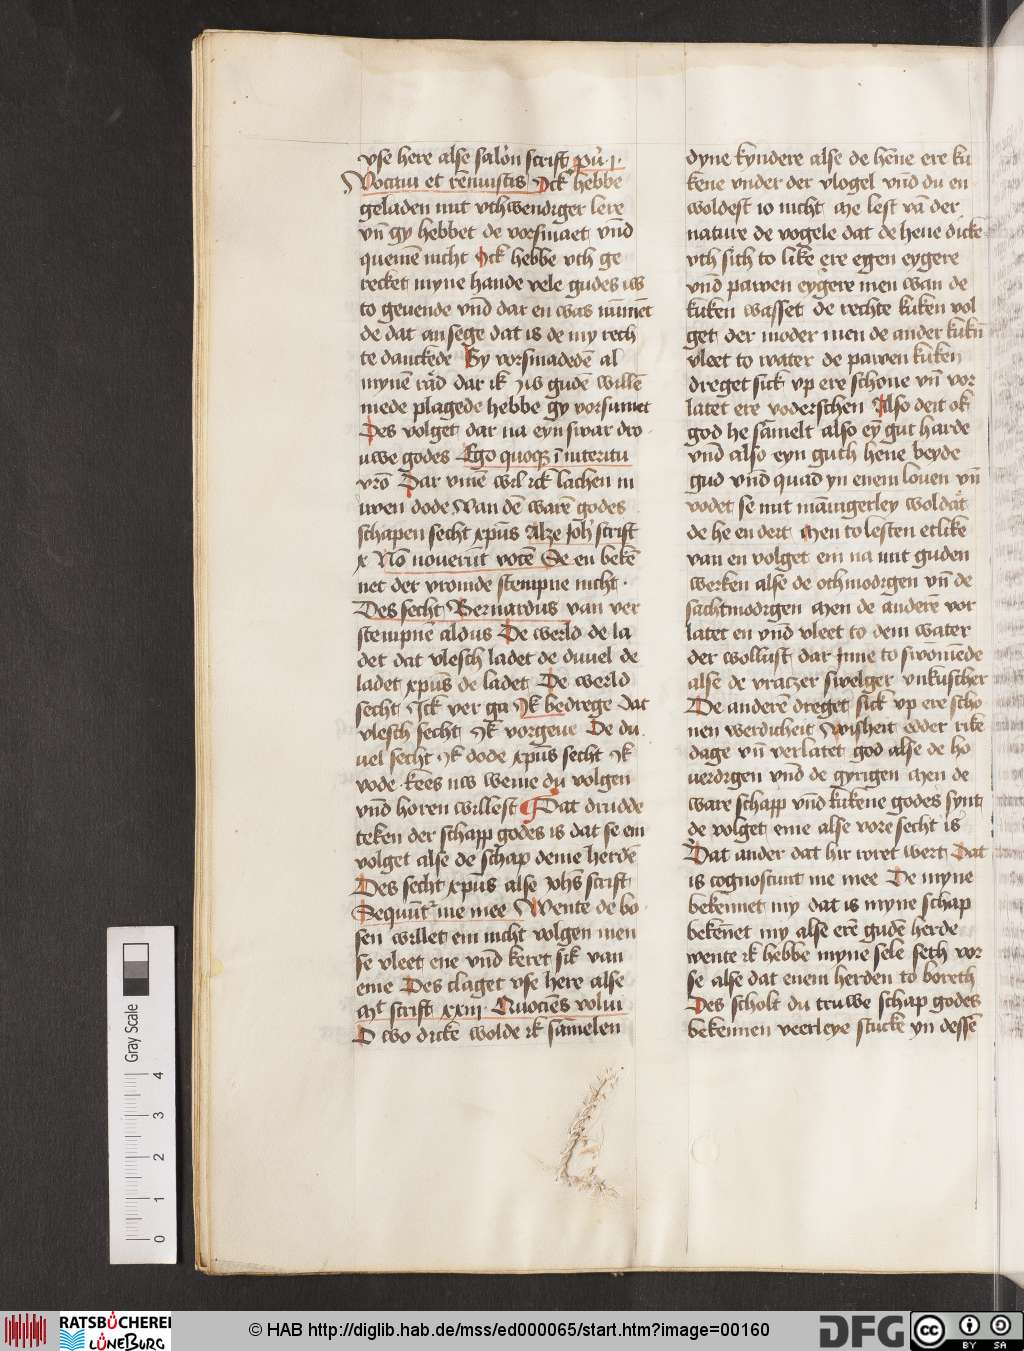 vse here alse salon scrift pũ j
Vocaui et rẽnuistis Ick hebbe
geladen mit vthwendiger lere
vñ gy hebbet de vorsmaet vnd
quemẽ nicht Ick hebbe vth ge
recket myne hande vele gudes iw
to geuende vnd dar en was nũmẽt
de dat ansege dat is de my rech
te danckede Gy vorsmadedẽ al
mynẽ rad dar ik iw gudẽ willẽ
mede plagede hebbe gy vorsumet
Des volget dar na eyn swar dro
uwe godes Ego quoqʒ ĩ interitu
vrõ Dar vmẽ wil ick lachen in
uwen dode Van dẽ warẽ godes
schapen secht xp̃us Alze joh̃ scrift
x Nõ nouerũt vocẽ Se en bekẽ
net der vromde stempne nicht
Des secht Bernardus van ver
stempnẽ aldus De werld de la
det dat vlesch ladet de duuel de
ladet xp̃us de ladet De werld
secht Ick ver ga Ik bedrege dat
vlesch secht Ik vorgeue De du
uel secht Ik dode xp̃us secht Ik
vode kees nw weme du volgen
vnd horen willest Dat drudde
teken der schapp godes is dat se em
volget alse de schap deme herdẽ
Des secht xp̃us alse joh̃s scrift
Sequũt me mee Wente de bo
sen willet em nicht volgen men
se vleet ene vnd keret sik van
eme Des claget vse here alse
mt scrift xxiij Quociẽs volui
D wo dicke wolde ik samelen
dyne kyndere alse de hẽne ere ku
kene vnder der vlogel vnd du en
woldest io nicht Me lest vã der
nature de vogele dat de hene dicke
vth sith to like ere egen eygere
vnd pawen eygere men wan de
kuken wasset de rechte kuken vol
get der moder men de ander kukñ
vleet to water de pawen kuken
dreget sick vp ere schone vñ vor
latet ere voderschen Also deit ok
god he samelt also eỹ gut harde
vnd also eyn guth hene beyde
gud vnd quad yn enem louen vñ
vodet se mit mãnigerley woldat
de he en deit Men to lesten etlike
van en volget em na mit guden
werken alse de othmodigen vñ de
sachtmodigen Men de anderẽ vor
latet en vnd vleet to dem water
der wollust dar jnne to swõmẽde
alse de vraczer swelger vnkuscher
De anderẽ dreget sick vp ere scho
nen werdicheit wisheit edder rike
dage vñ verlatet god alse de ho
uerdigen vnd de gyrigen Men de
ware schapp vnd kukene godes synt
de volget eme alse vore secht is
Dat ander dat hir wret wert Dat
is cognoscunt me mee De myne
bekennet my dat is myne schap
bekẽnet my alse erẽ gudẽ herde
wente ik hebbe myne sele seth vor
se alse dat enem herden to boreth
Des scholt du truwe schap godes
bekennen veerleye stucke yn dessẽ
Gray Scale
4
3
2
1
0
RATSBÜCHEREI
LÜNEBURG
© HAB http://diglib.hab.de/mss/ed000065/start.htm?image=00160
DFG
cc
BY SA